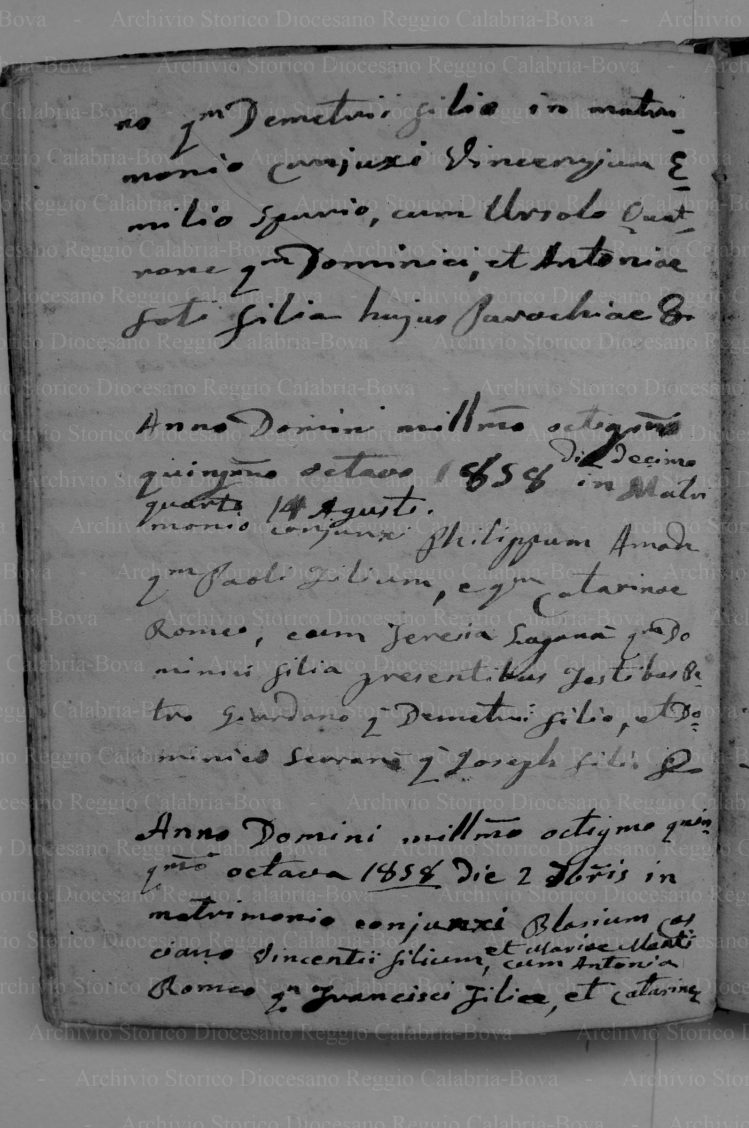 no qm Demetrii filio in matri-
monio conjuxi Vincenzium E-
milio Spurio, cum Ursola Quat-
rone qm Dominici, et Antoniae
Foti filia hujus Parochiae &
Anno Domini millmo octigmo
quinqmo octavo 1858 die decimo
quarto 14 Agusti. in Matri
monio conjunxi Philippum Amodi
qm Paoli Filium, e qm Catarinae
Romeo, cum Teresia Laganà qm Do
minici filia presentibus Testibus Pe-
tro Giordano q Demetrii filio, et Do-
minico Serranò q Joseph filio &
Anno Domini millmo octigmo quin-
qmo octava 1858 die 2 8bris in
matrimonio conjunxi Blasium Cas
ciano Vincentii filium, et Mariae Monti
cum Antonia
Romeo qm Francisci Filiae, et Catarinae